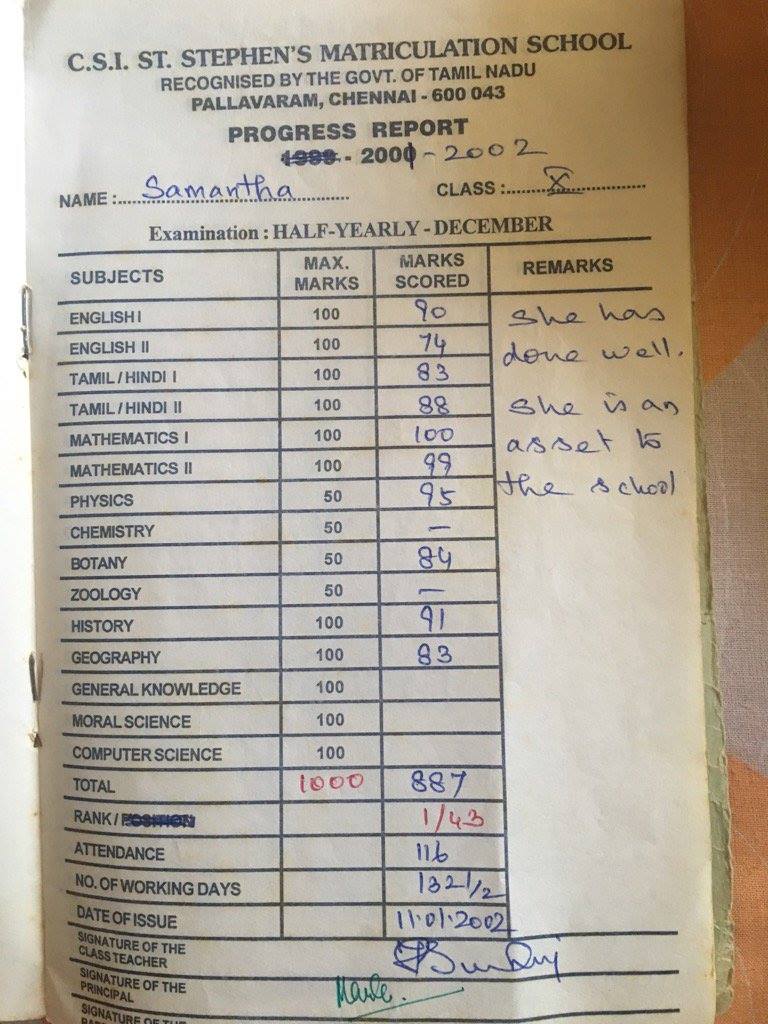 C.S.I. ST. STEPHEN'S MATRICULATION SCHOOL
RECOGNISED BY THE GOVT. OF TAMIL NADU
PALLAVARAM, CHENNAI - 600 043
PROGRESS REPORT
1999 - 2001 - 2002
NAME :.... Samantha .... CLASS :.... X ....
Examination : HALF-YEARLY - DECEMBER
SUBJECTS MAX. MARKS MARKS SCORED REMARKS
ENGLISH I 100 90 She has
ENGLISH II 100 74 done well.
TAMIL / HINDI I 100 83
TAMIL / HINDI II 100 88 She is an
MATHEMATICS I 100 100 asset to
MATHEMATICS II 100 99 the school
PHYSICS 50 95
CHEMISTRY 50 —
BOTANY 50 84
ZOOLOGY 50 —
HISTORY 100 91
GEOGRAPHY 100 83
GENERAL KNOWLEDGE 100
MORAL SCIENCE 100
COMPUTER SCIENCE 100
TOTAL 1000 887
RANK / POSITION 1/43
ATTENDANCE 116
NO. OF WORKING DAYS 132 1/2
DATE OF ISSUE 11.01.2002
SIGNATURE OF THE
CLASS TEACHER
SIGNATURE OF THE
PRINCIPAL
SIGNATURE OF THE